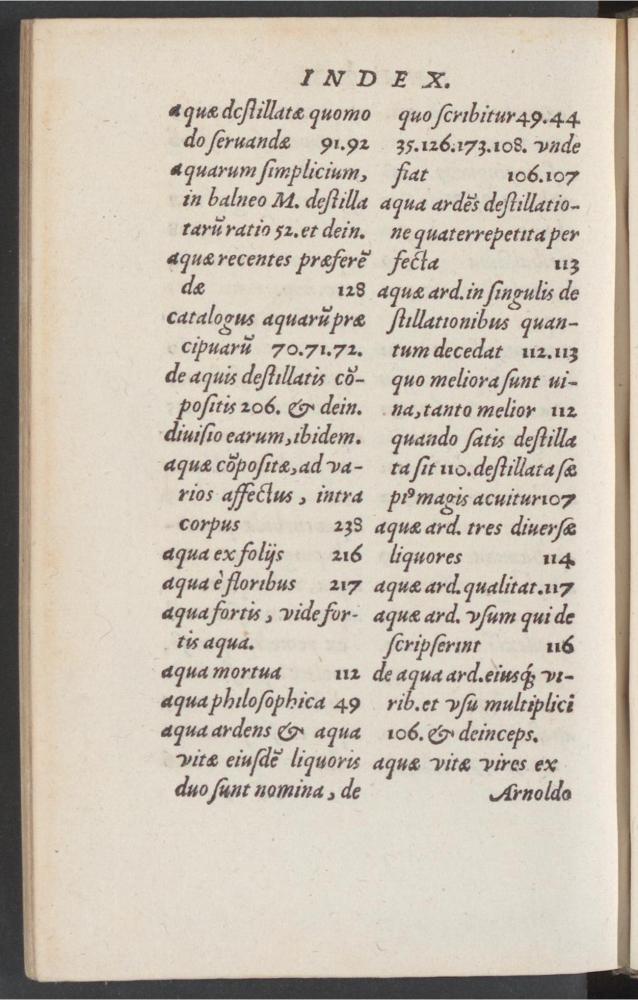 INDEX.
aquæ destillatæ quomo
do seruandæ 91.92
aquarum simplicium,
in balneo M. destilla
tarū ratio 52. et dein.
aquæ recentes præferē
dæ 128
catalogus aquarū præ
cipuarū 70.71.72.
de aquis destillatis cō-
positis 206. & dein.
diuisio earum, ibidem.
aquæ cōpositæ, ad va-
rios affectus, intra
corpus 238
aqua ex folijs 216
aqua è floribus 217
aqua fortis, vide for-
tis aqua.
aqua mortua 112
aqua philosophica 49
aqua ardens & aqua
vitæ eiusdē liquoris
duo sunt nomina, de
quo scribitur 49.44
35.126.173.108. vnde
fiat 106.107
aqua ardēs destillatio-
ne quater repetita per
fecta 113
aquæ ard. in singulis de
stillationibus quan-
tum decedat 112.113
quo meliora sunt ui-
na, tanto melior 112
quando satis destilla
ta sit 110. destillata sæ
piꝰ magis acuitur 107
aquæ ard. tres diuersæ
liquores 114
aquæ ard. qualitat. 117
aquæ ard. vsum qui de
scripserint 116
de aqua ard. eiusq́; vi-
rib. et vsu multiplici
106. & deinceps.
aquæ vitæ vires ex
Arnoldo